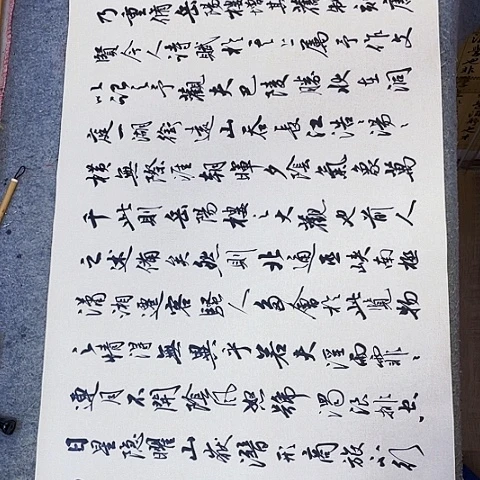 乃重脩岳陽樓增其舊制刻唐
賢今人詩賦於其上屬予作文
以記之予觀夫巴陵勝狀在洞
庭一湖銜遠山吞長江浩〻湯〻
橫無際涯朝暉夕陰氣象萬
千此則岳陽樓之大觀也前人
之述備矣然則北通巫峽南極
瀟湘遷客騷人多會於此覽物
之情得無異乎若夫淫雨霏〻
連月不開陰風怒號濁浪排空
日星隐曜山嶽潛形商旅不行